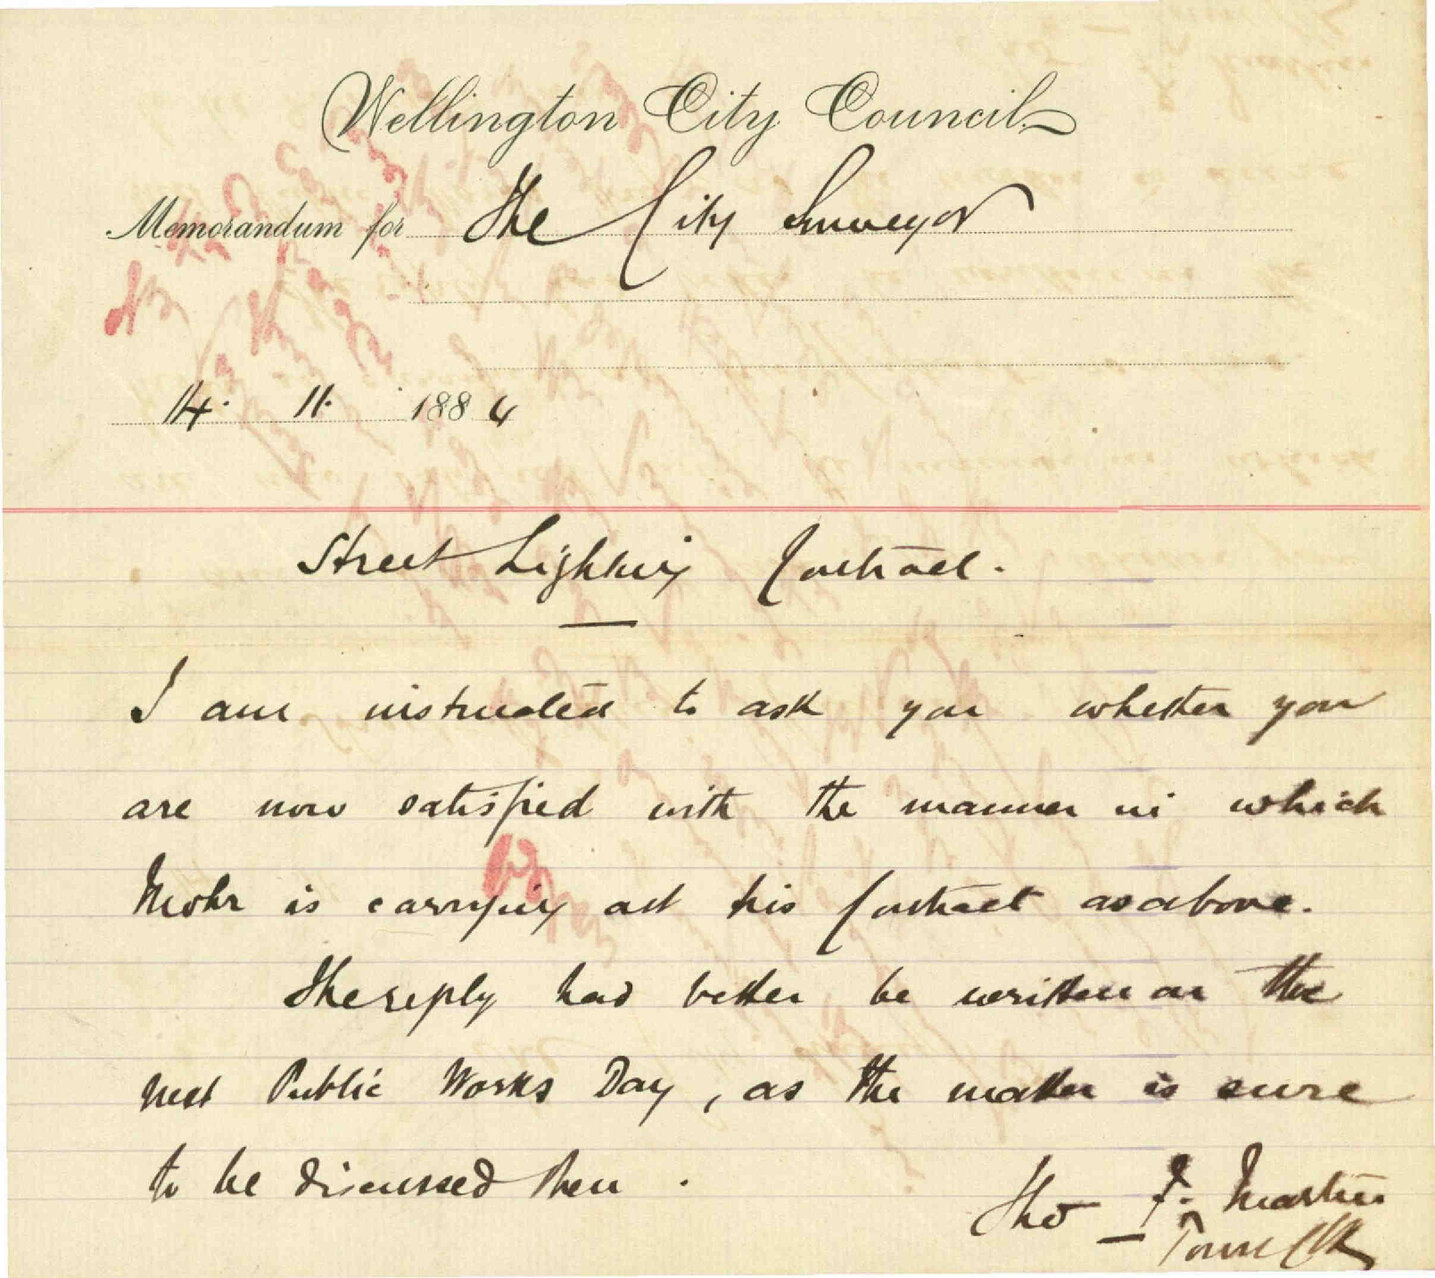 Wellington City Council.
Memorandum for The City Surveyor
14. 11. 1884
Street Lighting Contract.
I am instructed to ask you whether you
are now satisfied with the manner in which
Mohr is carrying out his Contract as above.
The reply had better be written on the
next Public Works Day, as the matter is sure
to be discussed then.
Tho F. Martin
Town Clk